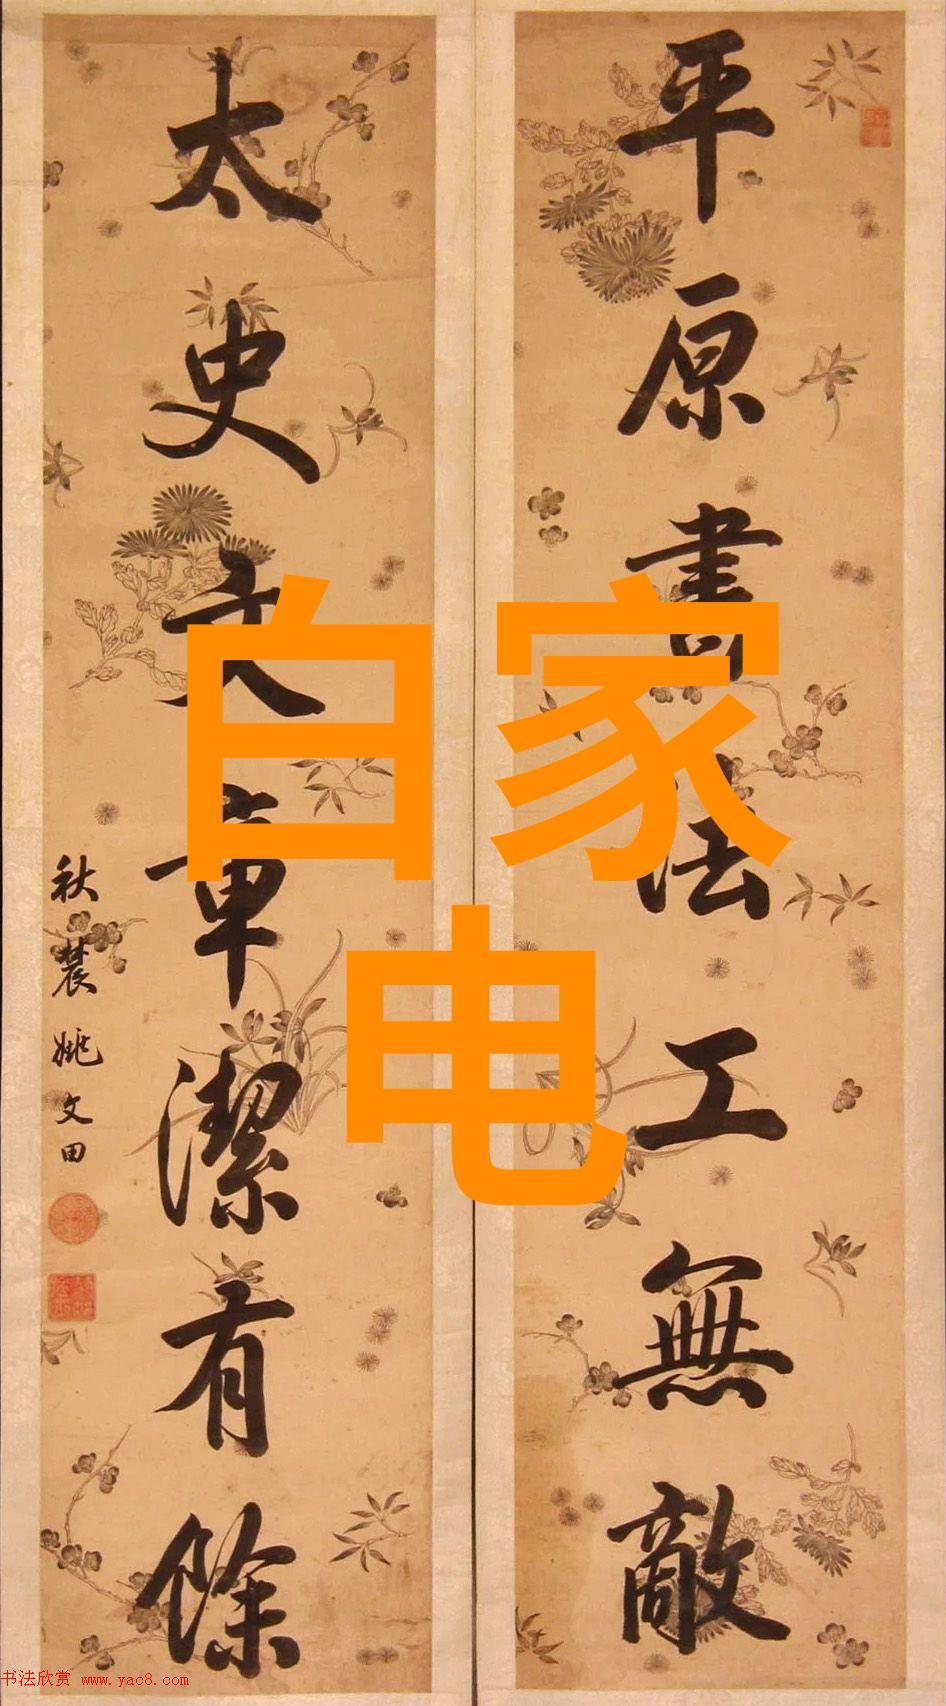 平原書法工無敵
太史文章潔有餘
秋農姚文田
白家
电
书法欣赏 www.yac8.com